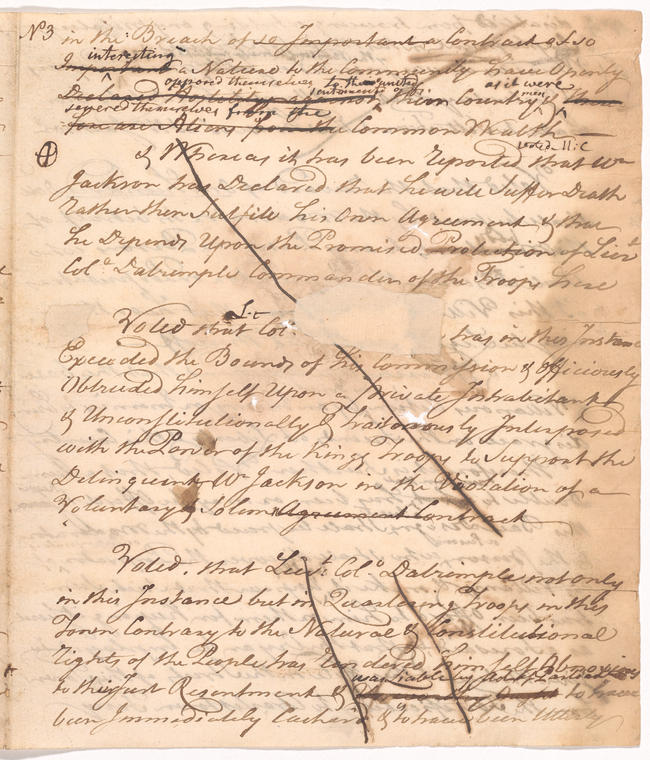 No 3 in the Breach of so Important a Contract & so
interesting
Important a Nature to the Community have Openly
opposed themselves to the united sentiments of as it were
Declared Hostility against their Country &
severed themselves from the men
Common Wealth
voted N:C
& Whereas it has been reported that Wm
Jackson has Declared that he will Suffer Death
Rather then fulfile his Own Agreement & that
he Depends Upon the Promised Protection of Lieut
Colo Dalrimple Commander of the Troops here
Lt
Voted that Col. has in this Instance
Exceeded the Bounds of his Commission & officiously
Obtruded himself Upon a Private Inhabitant
& Unconstitutionally & Traitorously Interposed
with the Power of the Kings Troops to Support the
Delinquent Wm Jackson in the Violation of a
Voluntary & Solemn Agreement Contract
Voted. that Lieut. Colo Dalrimple not only
in this Instance but in Quartering Troops in this
Town Contrary to the Natural & Constitutional
Rights of the People has Rendered himself Obnoxious
to their Just Resentment & to have
been Immediately & to have been Utterly